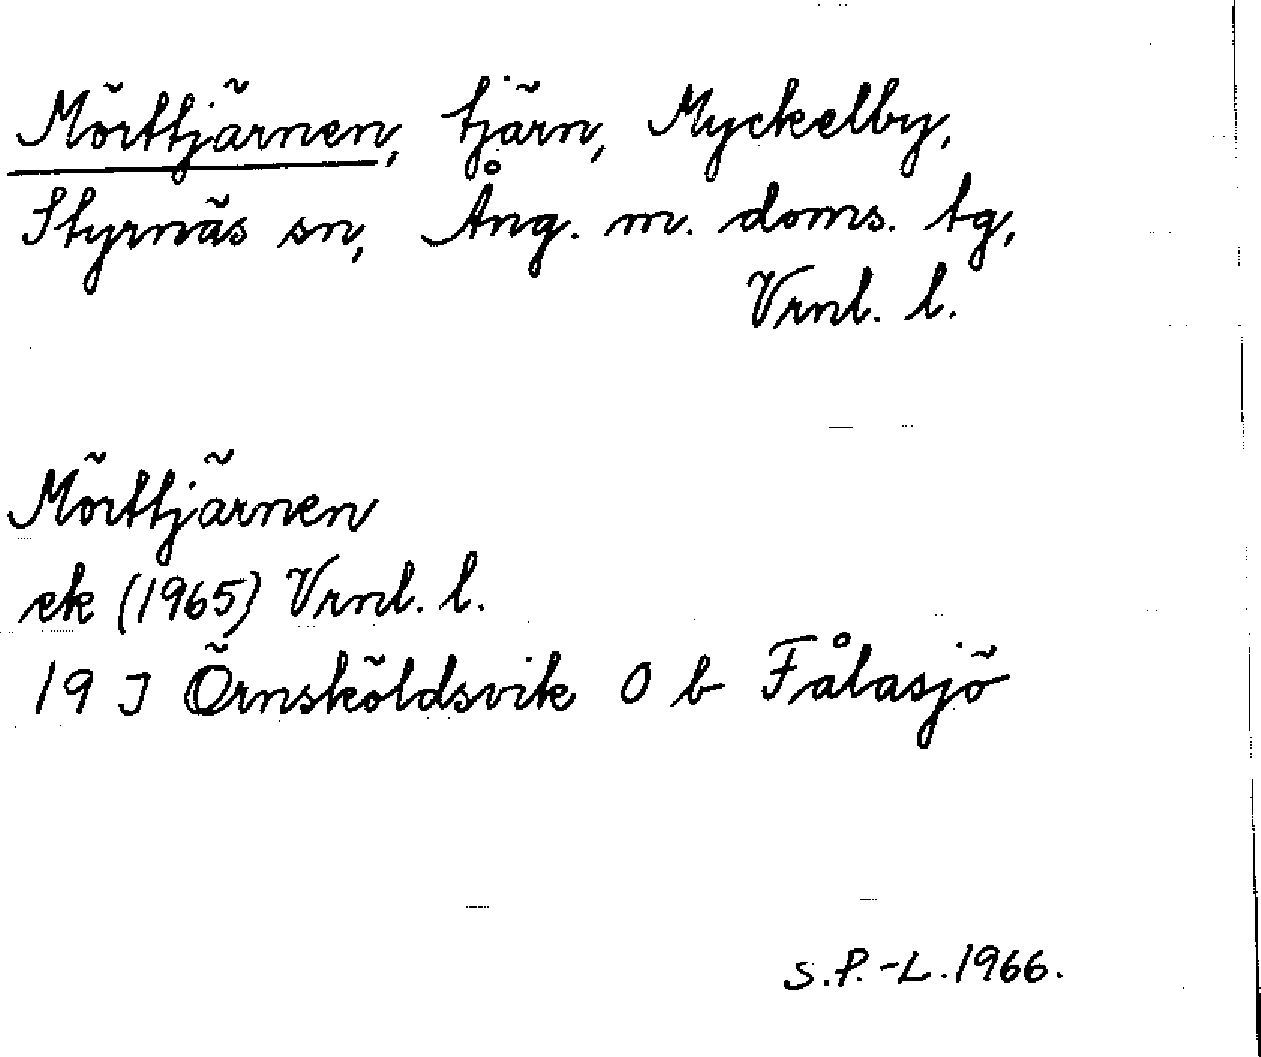 Mörttjärnen, tjärn, Myckelby,
Styrnäs sn, Ång. m. doms. tg,
Vrnl. l.
Mörttjärnen
ek (1965) Vrnl. l.
19 J Örnsköldsvik 0 b Fålasjö
S.P.-L. 1966.